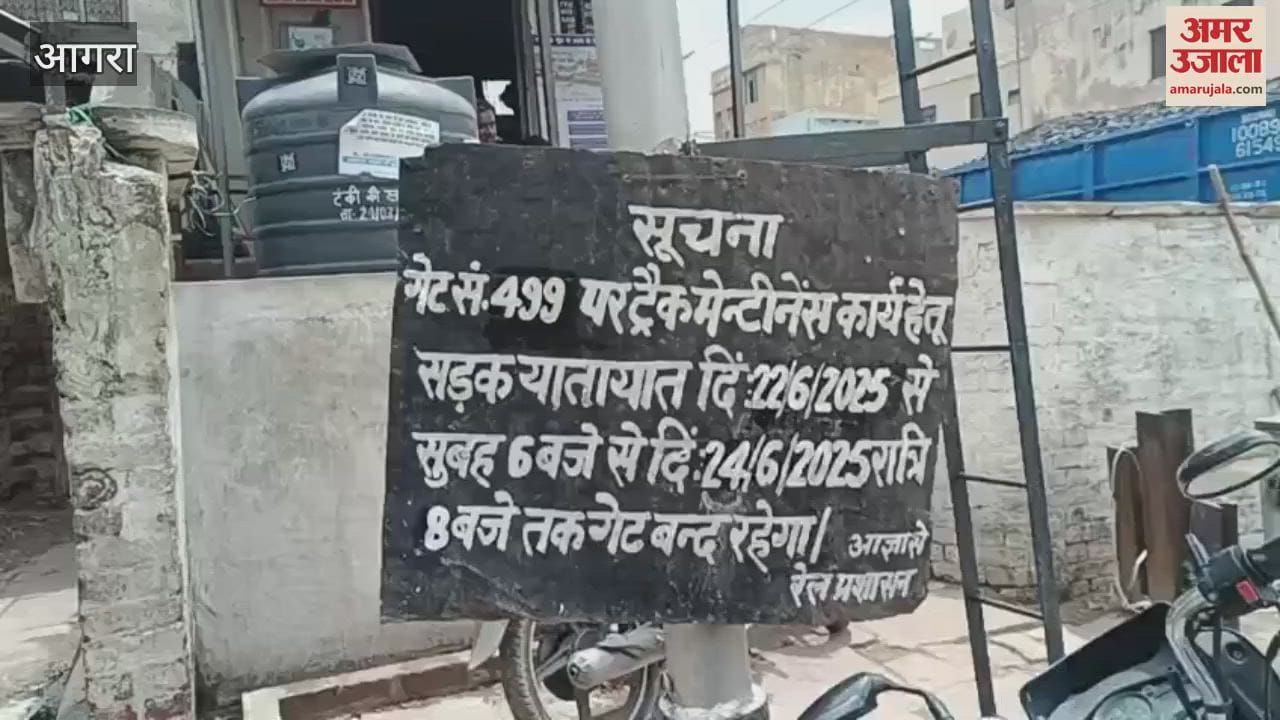 आगरा
अमर
उजाला
amarujala.com
सूचना
गेट सं. 499 पर ट्रैक मेन्टीनेंस कार्य हेतू
सड़क यातायात दिं: 22/6/2025 से
सुबह 6 बजे से दिं: 24/6/2025 रात्रि
8 बजे तक गेट बन्द रहेगा/
आज्ञा से
रेल प्रशासन
टंकी की
10089